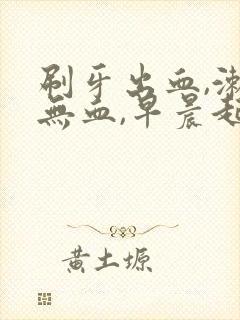 刷牙出血,漱
無血,早晨起
黄土塬